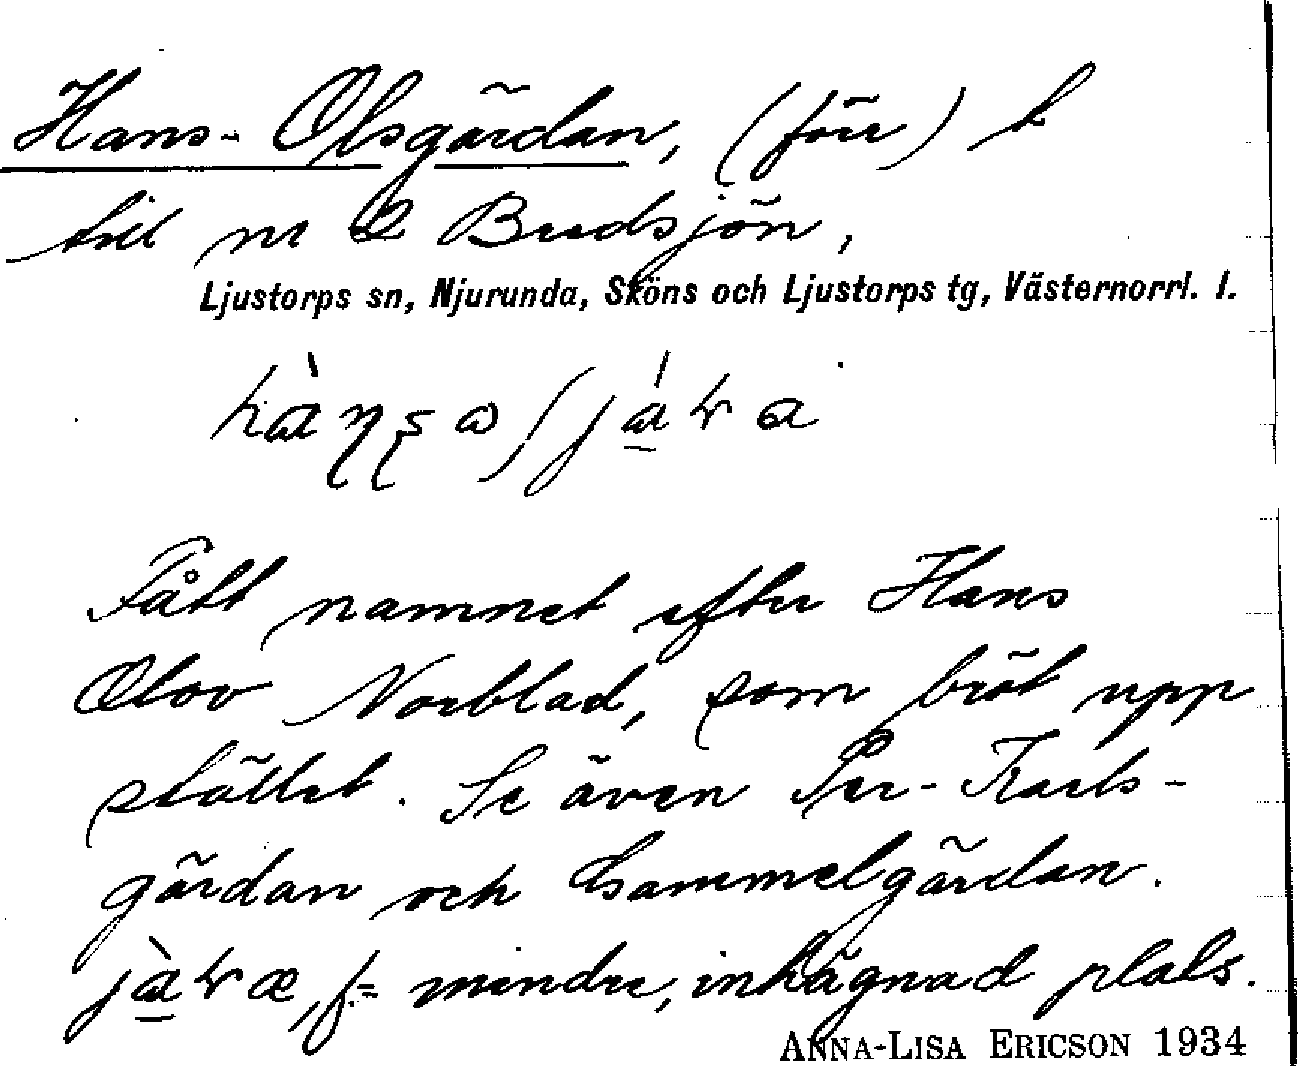 Hans-Olsgärdan, (förr) t
till nr 2 Bredsjön,
Ljustorps sn, Njurunda, Sköns och Ljustorps tg, Västernorrl. l.
Fått namnet efter Hans
Olov Norblad, som bröt upp
stället. Se även Per-Karls-
gärdan och Gammelgärdan.
mindre, inhägnad plats.
ANNA-LISA ERICSON 1934